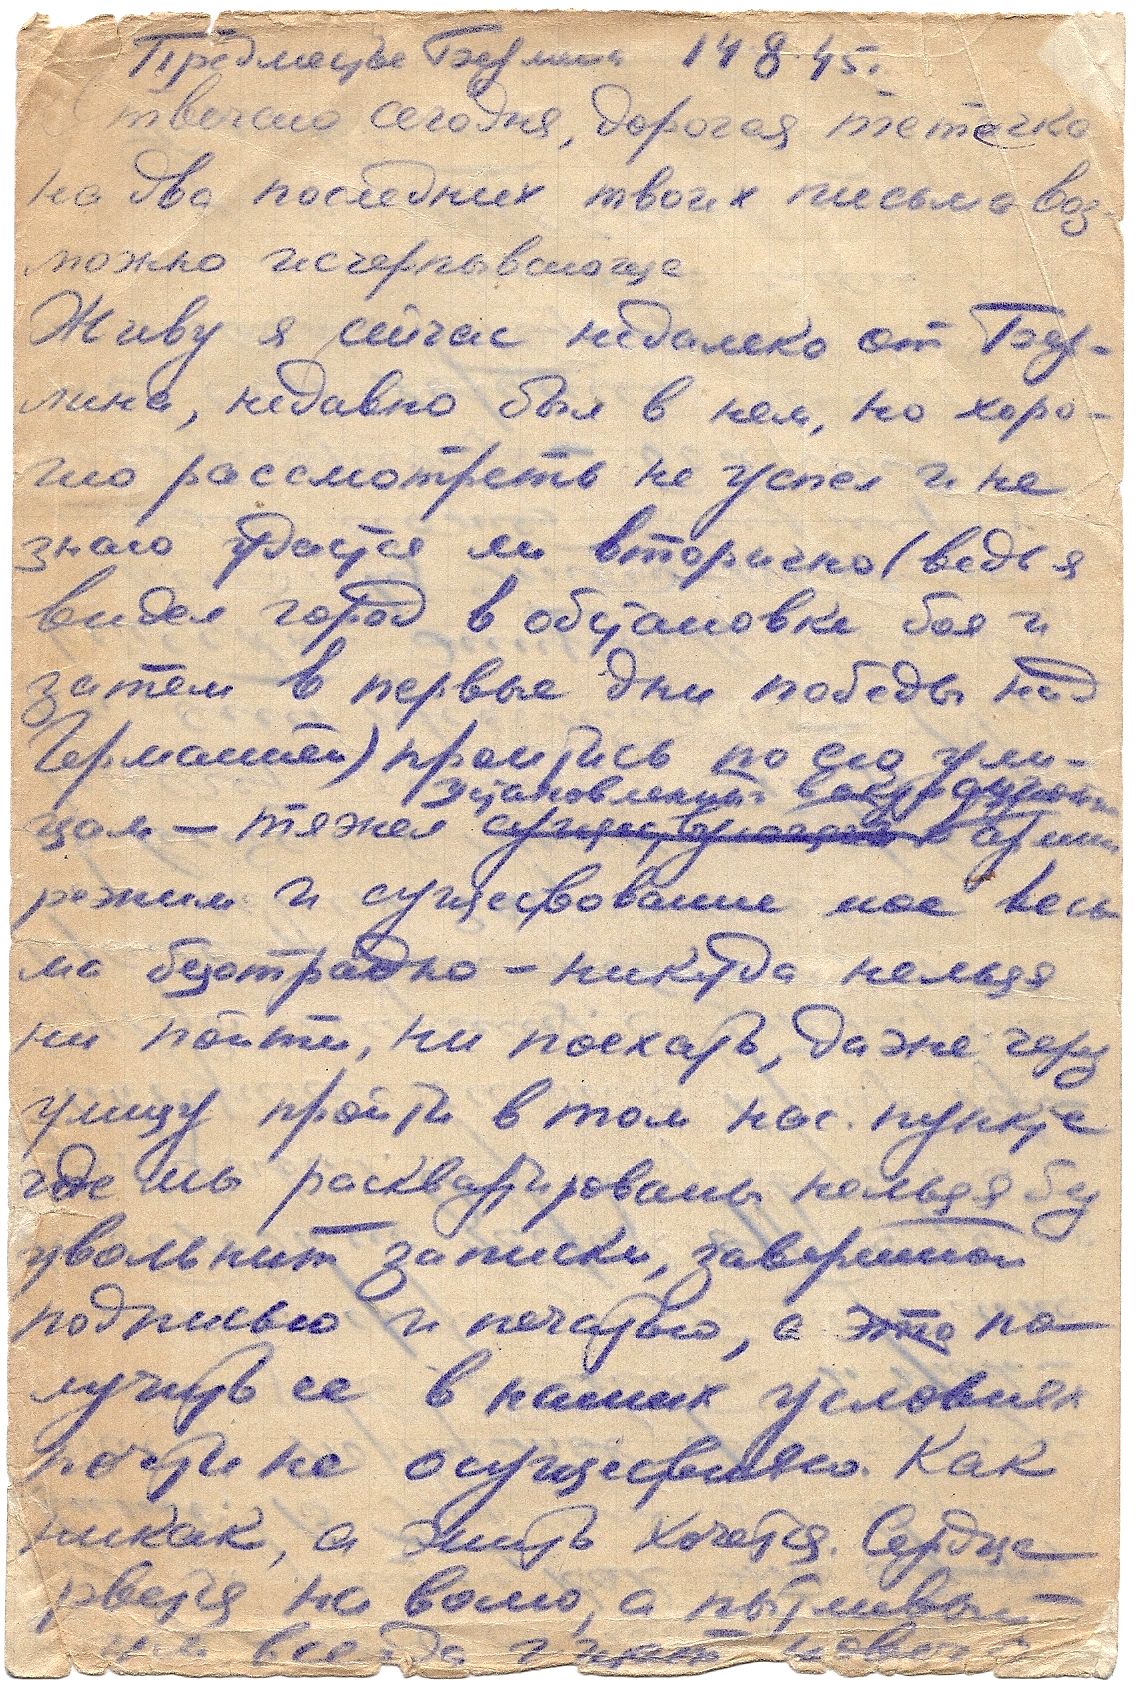 Предместье Берлина 14 8 45г.
Отвечаю сегодня, дорогая тетечка
на два последних твоих письма воз-
можно исчерпывающе
Живу я сейчас недалеко от Бер-
лина, недавно был в нем, но хоро-
шо рассмотреть не успел и не
знаю удастся ли вторично (ведь я
видел город в обстановке боя и
затем в первые дни победы над
Германией) пройтись по его ули-
установленный в оккупационной
цам – тяжел существующий армии
режим и существование мое весь
ма безотрадно – никуда нельзя
ни пойти, ни поехать, даже через
улицу пройти в том нас. пункте
где мы расквартированы нельзя без
увольнит записки, заверенной
подписью и печатью, а это по-
лучить ее в наших условиях
почти не осуществимо. Как
никак, а жить хочется. Сердце
рвется на волю, а пытливый
ум всегда ищет нового